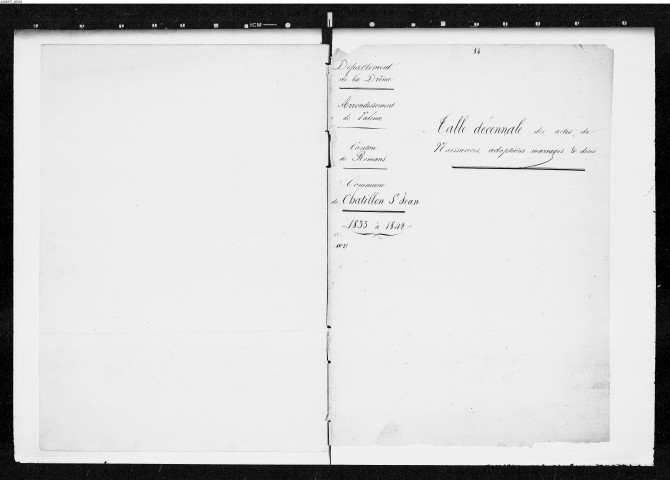 34
Département
de la Drôme
Arrondissement
de Valence
Canton
de Romans
Commune
de Chatillon St Jean
1833 à 1842
Table décennale des actes de
Naissances, adoptions mariages & décès